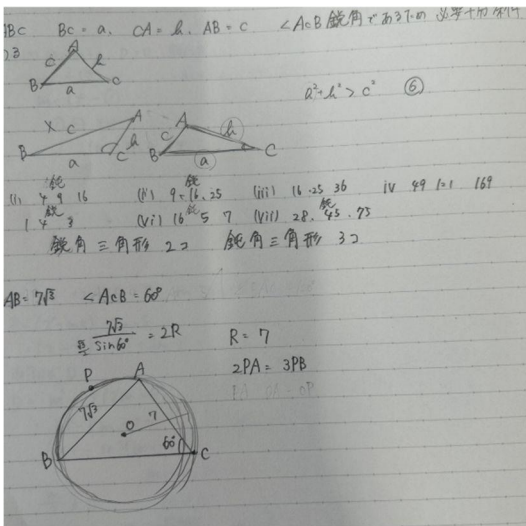 ABC BC = a. CA = b. AB = c ∠ACB 鋭角であるための 必要十分条件
a²+b² > c² ⑥
A
c b
B a C
× c A
b
B a C
A
c b
B a C
鈍 鈍
(i) 4 9 16 (ii) 9. 16. 25 (iii) 16 25 36 iv 49 121 169
鋭 鈍 鈍
(vi) 16 5 7 (vii) 28. 45. 75
鋭角三角形 2コ 鈍角三角形 3コ
AB = 7√3 ∠ACB = 60°
7√3 / sin60° = 2R R = 7
√3/2
2PA = 3PB
P A
7√3 O 7
60°
B C